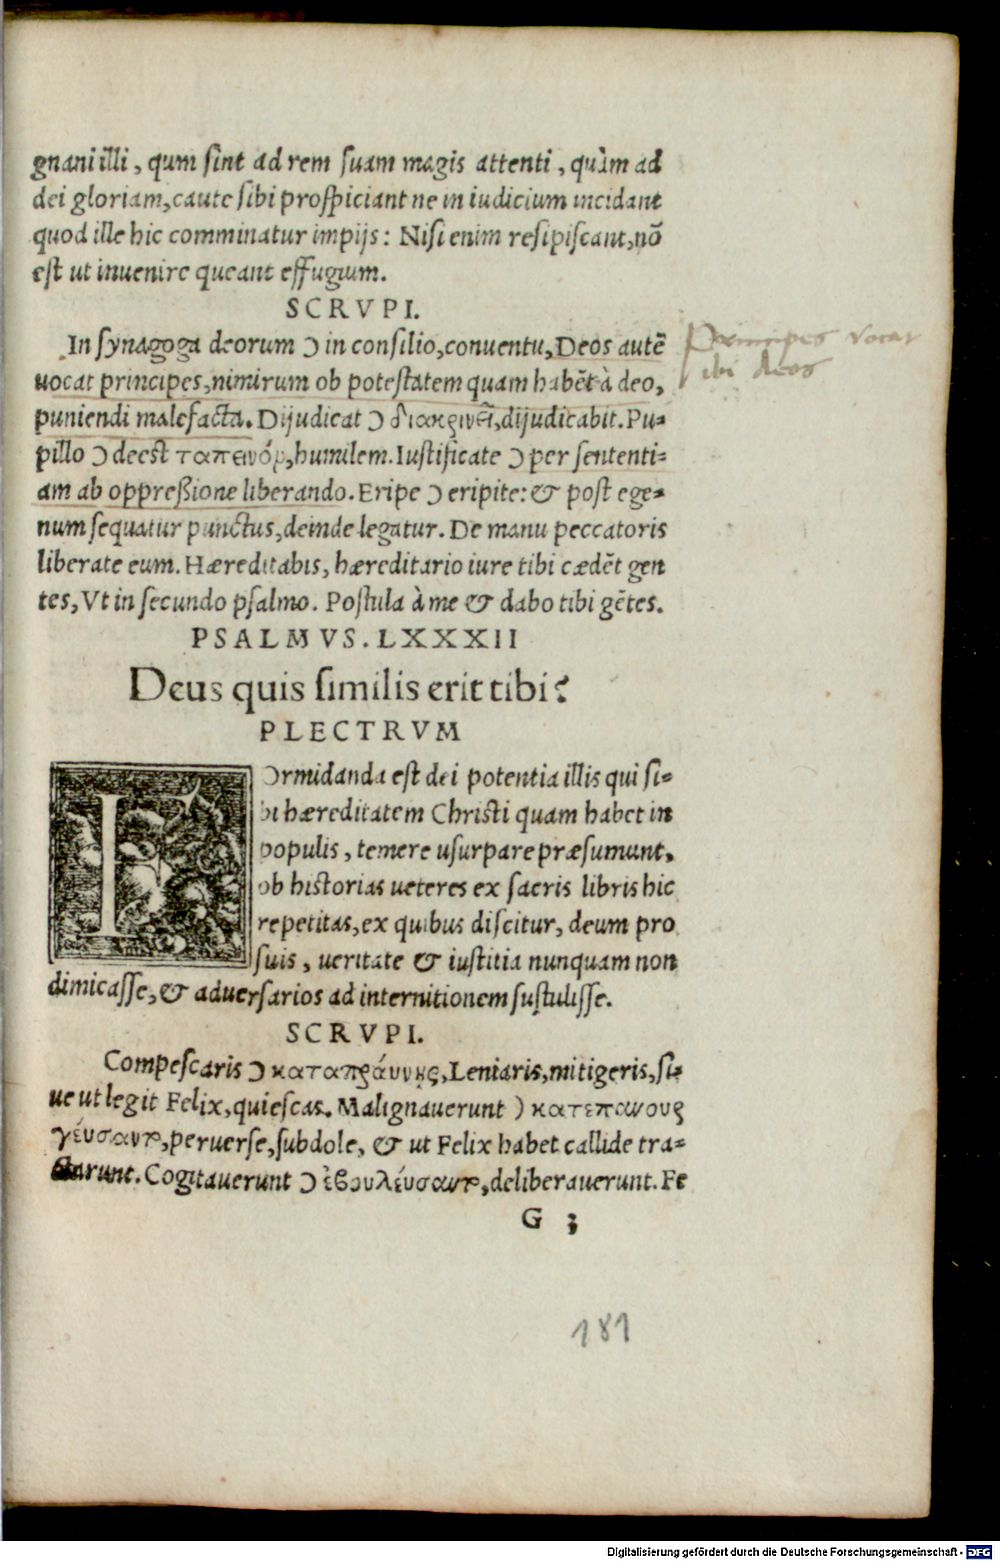 gnani illi, qum sint ad rem suam magis attenti, quàm ad
dei gloriam, caute sibi prospiciant ne in iudicium incidant
quod ille hic comminatur impijs: Nisi enim resipiscant, nō
est ut inuenire queant effugium.
SCRVPI.
In synagoga deorum Ɔ in consilio, conuentu, Deos autē
uocat principes, nimirum ob potestatem quam habēt à deo,
puniendi malefacta. Dijudicat Ɔ διακρινεῖ, dijudicabit. Pu-
pillo Ɔ deest ταπεινόν, humilem. Iustificate Ɔ per sententi-
am ab oppreßione liberando. Eripe Ɔ eripite: & post ege-
num sequatur punctus, deinde legatur. De manu peccatoris
liberate eum. Hæreditabis, hæreditario iure tibi cædēt gen
tes, Vt in secundo psalmo. Postula à me & dabo tibi gētes.
Principes vocat
ibi deos
PSALMVS. LXXXII
Deus quis similis erit tibi?
PLECTRVM
FOrmidanda est dei potentia illis qui si-
bi hæreditatem Christi quam habet in
populis, temere usurpare præsumunt,
ob historias ueteres ex sacris libris hic
repetitas, ex quibus discitur, deum pro
suis, ueritate & iustitia nunquam non
dimicasse, & aduersarios ad internitionem sustulisse.
SCRVPI.
Compescaris Ɔ καταπραύνῃς, Leniaris, mitigeris, si-
ue ut legit Felix, quiescas. Malignauerunt Ɔ κατεπανουρ
γέυσαντο, peruerse, subdole, & ut Felix habet callide tra-
ctarunt. Cogitauerunt Ɔ ἐβουλέυσαντο, deliberauerunt. Fe
G 3
181
Digitalisierung gefördert durch die Deutsche Forschungsgemeinschaft - DFG